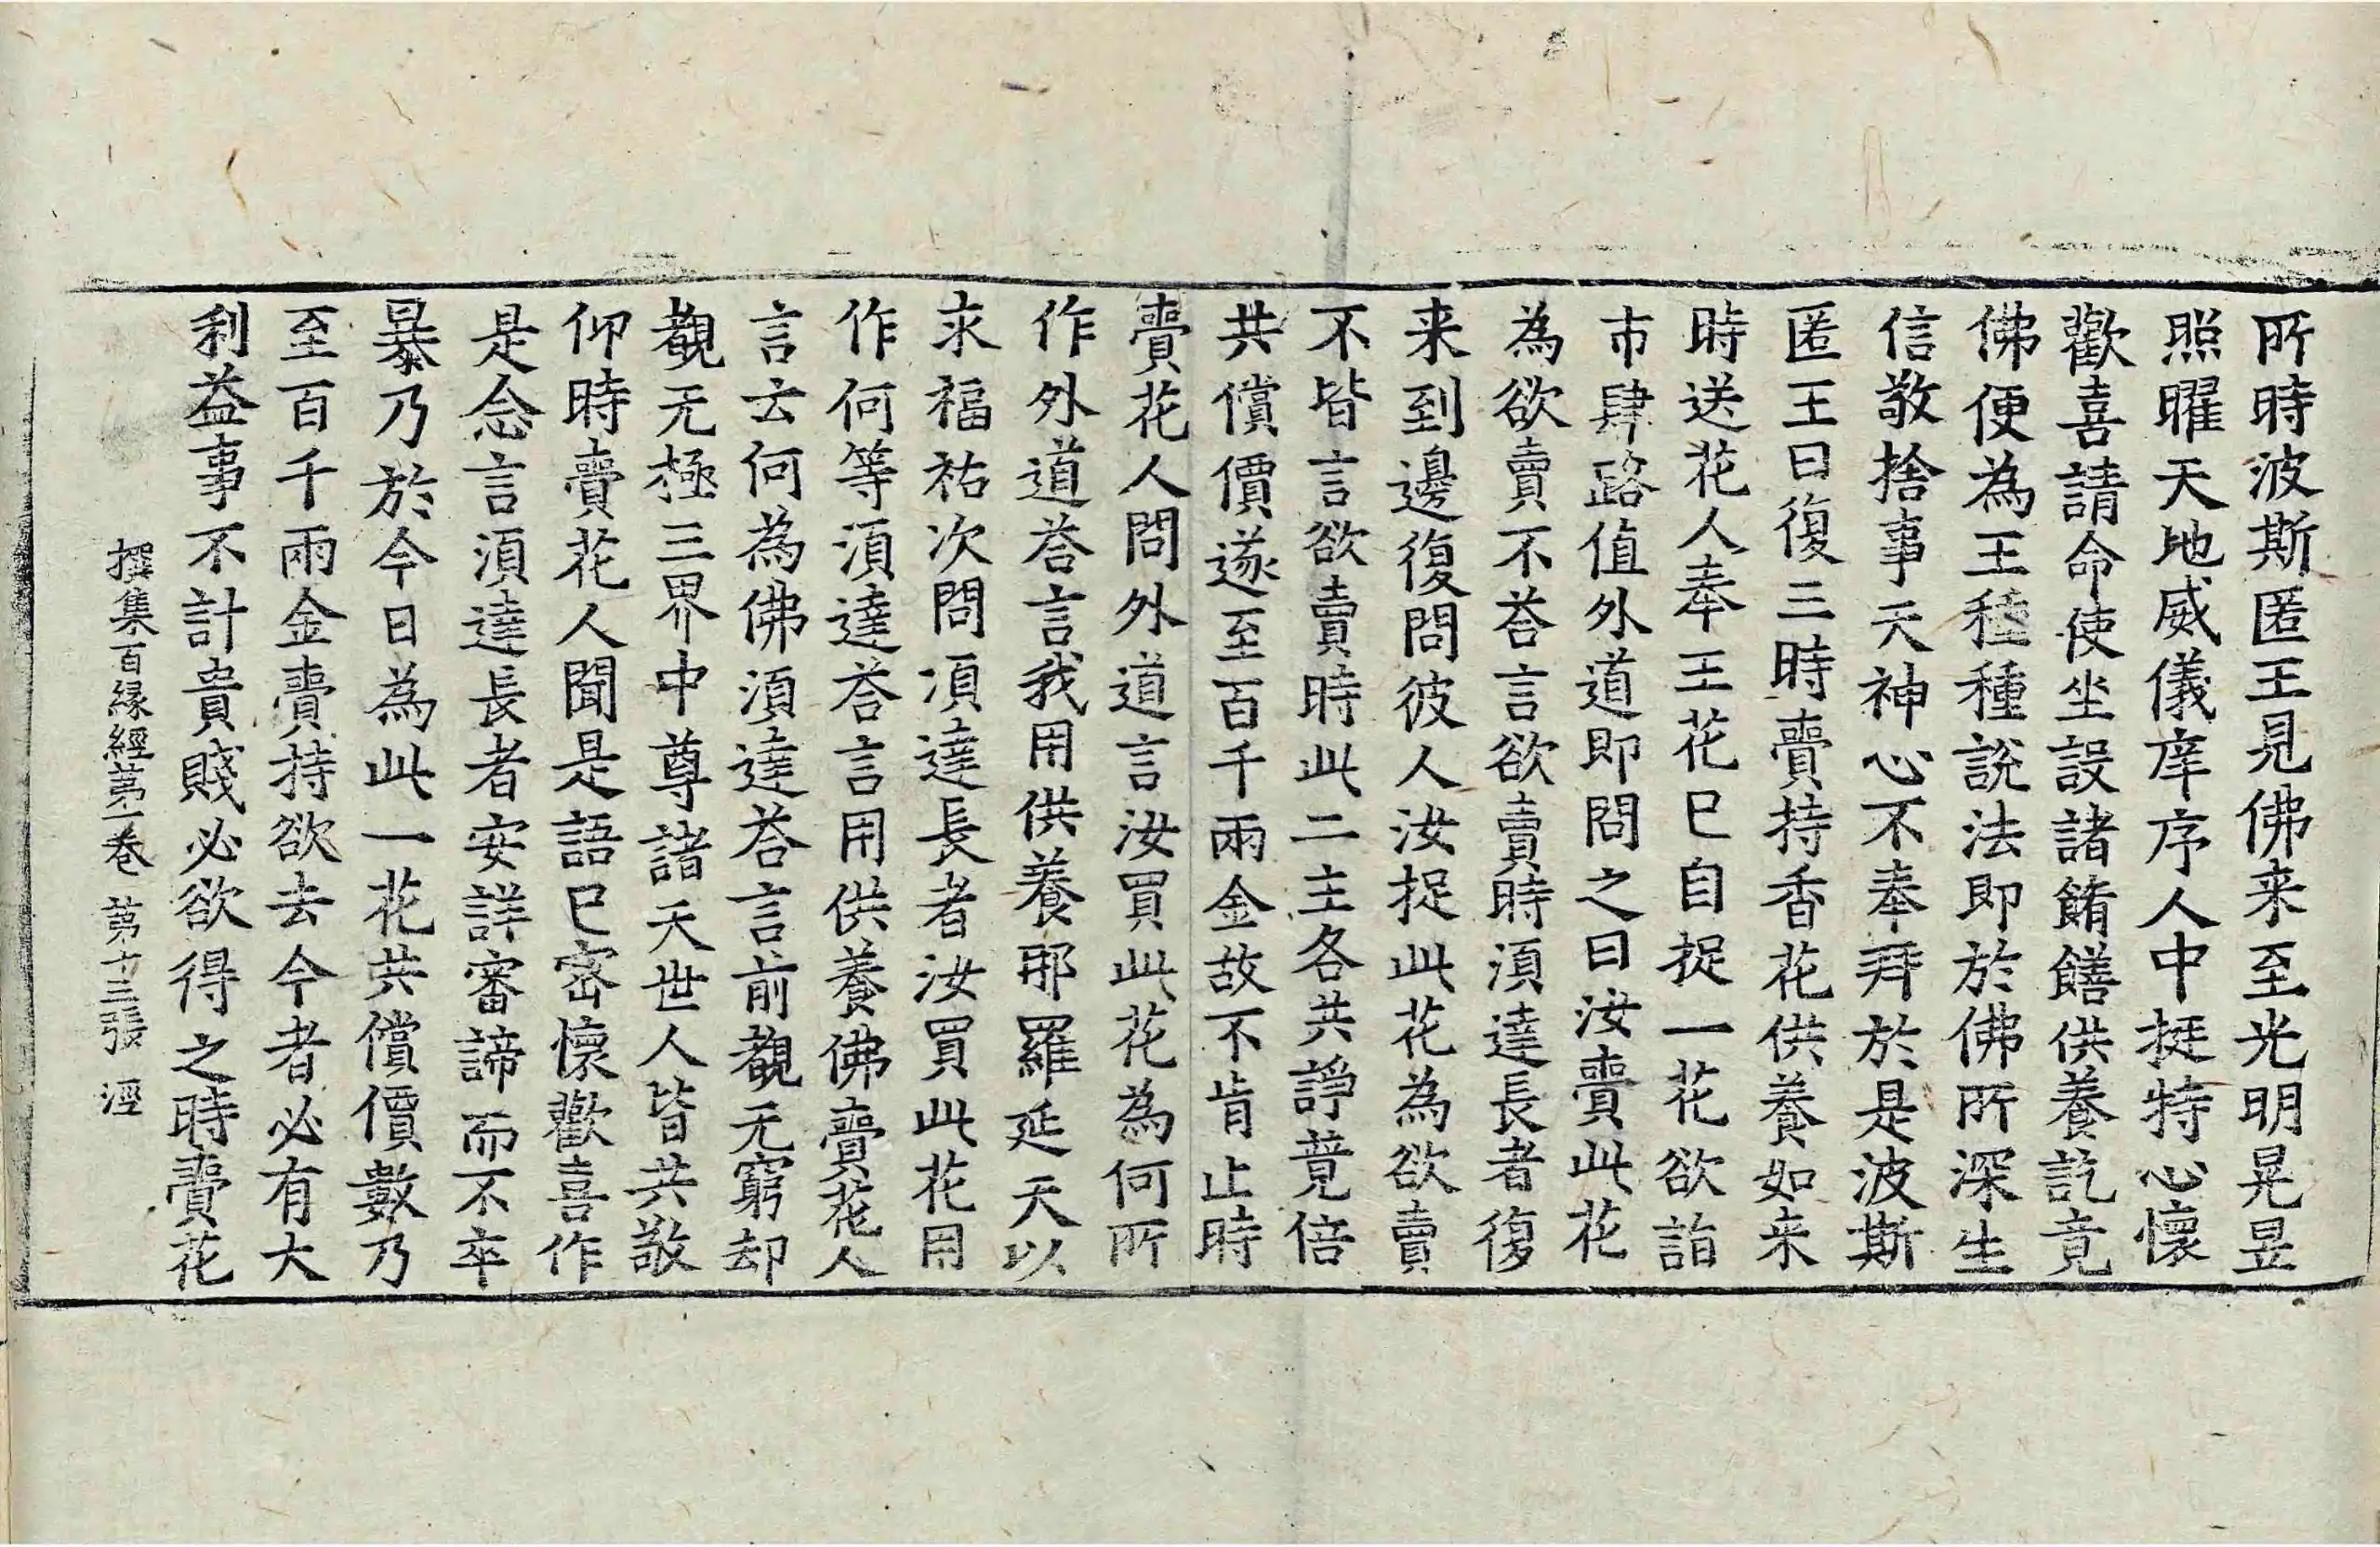 所時波斯匿王見佛来至光明晃昱
照曜天地威儀庠序人中挺特心懷
歡喜請命使坐設諸餚饍供養訖竟
佛便為王種種說法即於佛所深生
信敬捨事天神心不奉拜於是波斯
匿王日復三時賷持香花供養如来
時送花人奉王花已自捉一花欲詣
市肆路值外道即問之曰汝賷此花
為欲賣不荅言欲賣時須達長者復
来到邊復問彼人汝捉此花為欲賣
不皆言欲賣時此二主各共諍竟倍
共償價遂至百千兩金故不肯止時
賷花人問外道言汝買此花為何所
作外道荅言我用供養那羅延天以
求福祐次問須達長者汝買此花用
作何等須達荅言用供養佛賷花人
言云何為佛須達荅言前覩无窮却
覩无極三界中尊諸天世人皆共敬
仰時賷花人聞是語已密懷歡喜作
是念言須達長者安詳審諦而不卒
暴乃於今日為此一花共償價數乃
至百千兩金賷持欲去今者必有大
利益事不計貴賤必欲得之時賷花
撰集百緣經第一卷 第十三張 涇